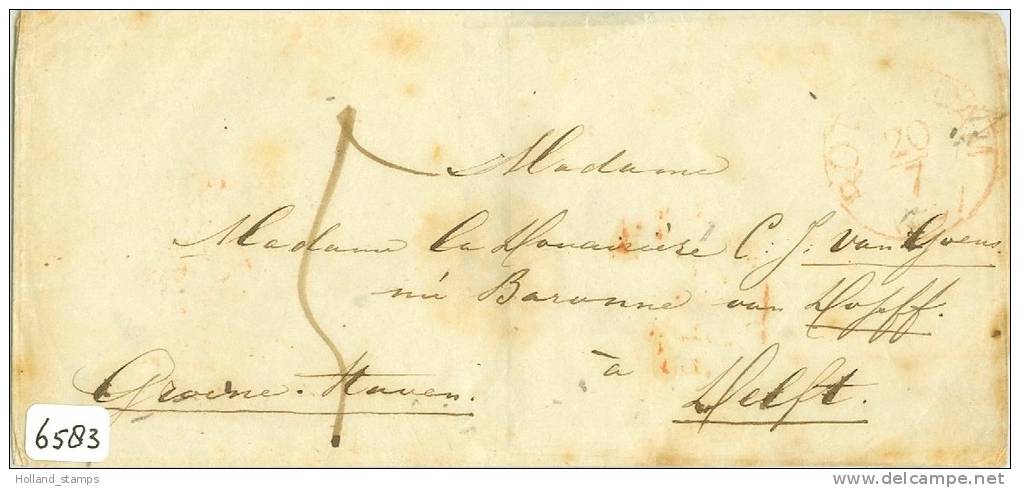 20
7
Madame
Madame la Douairière C: J: van Goens
née Baronne van
à
Groene Haven. Delft.
6583
Holland_stamps
www.delcampe.net